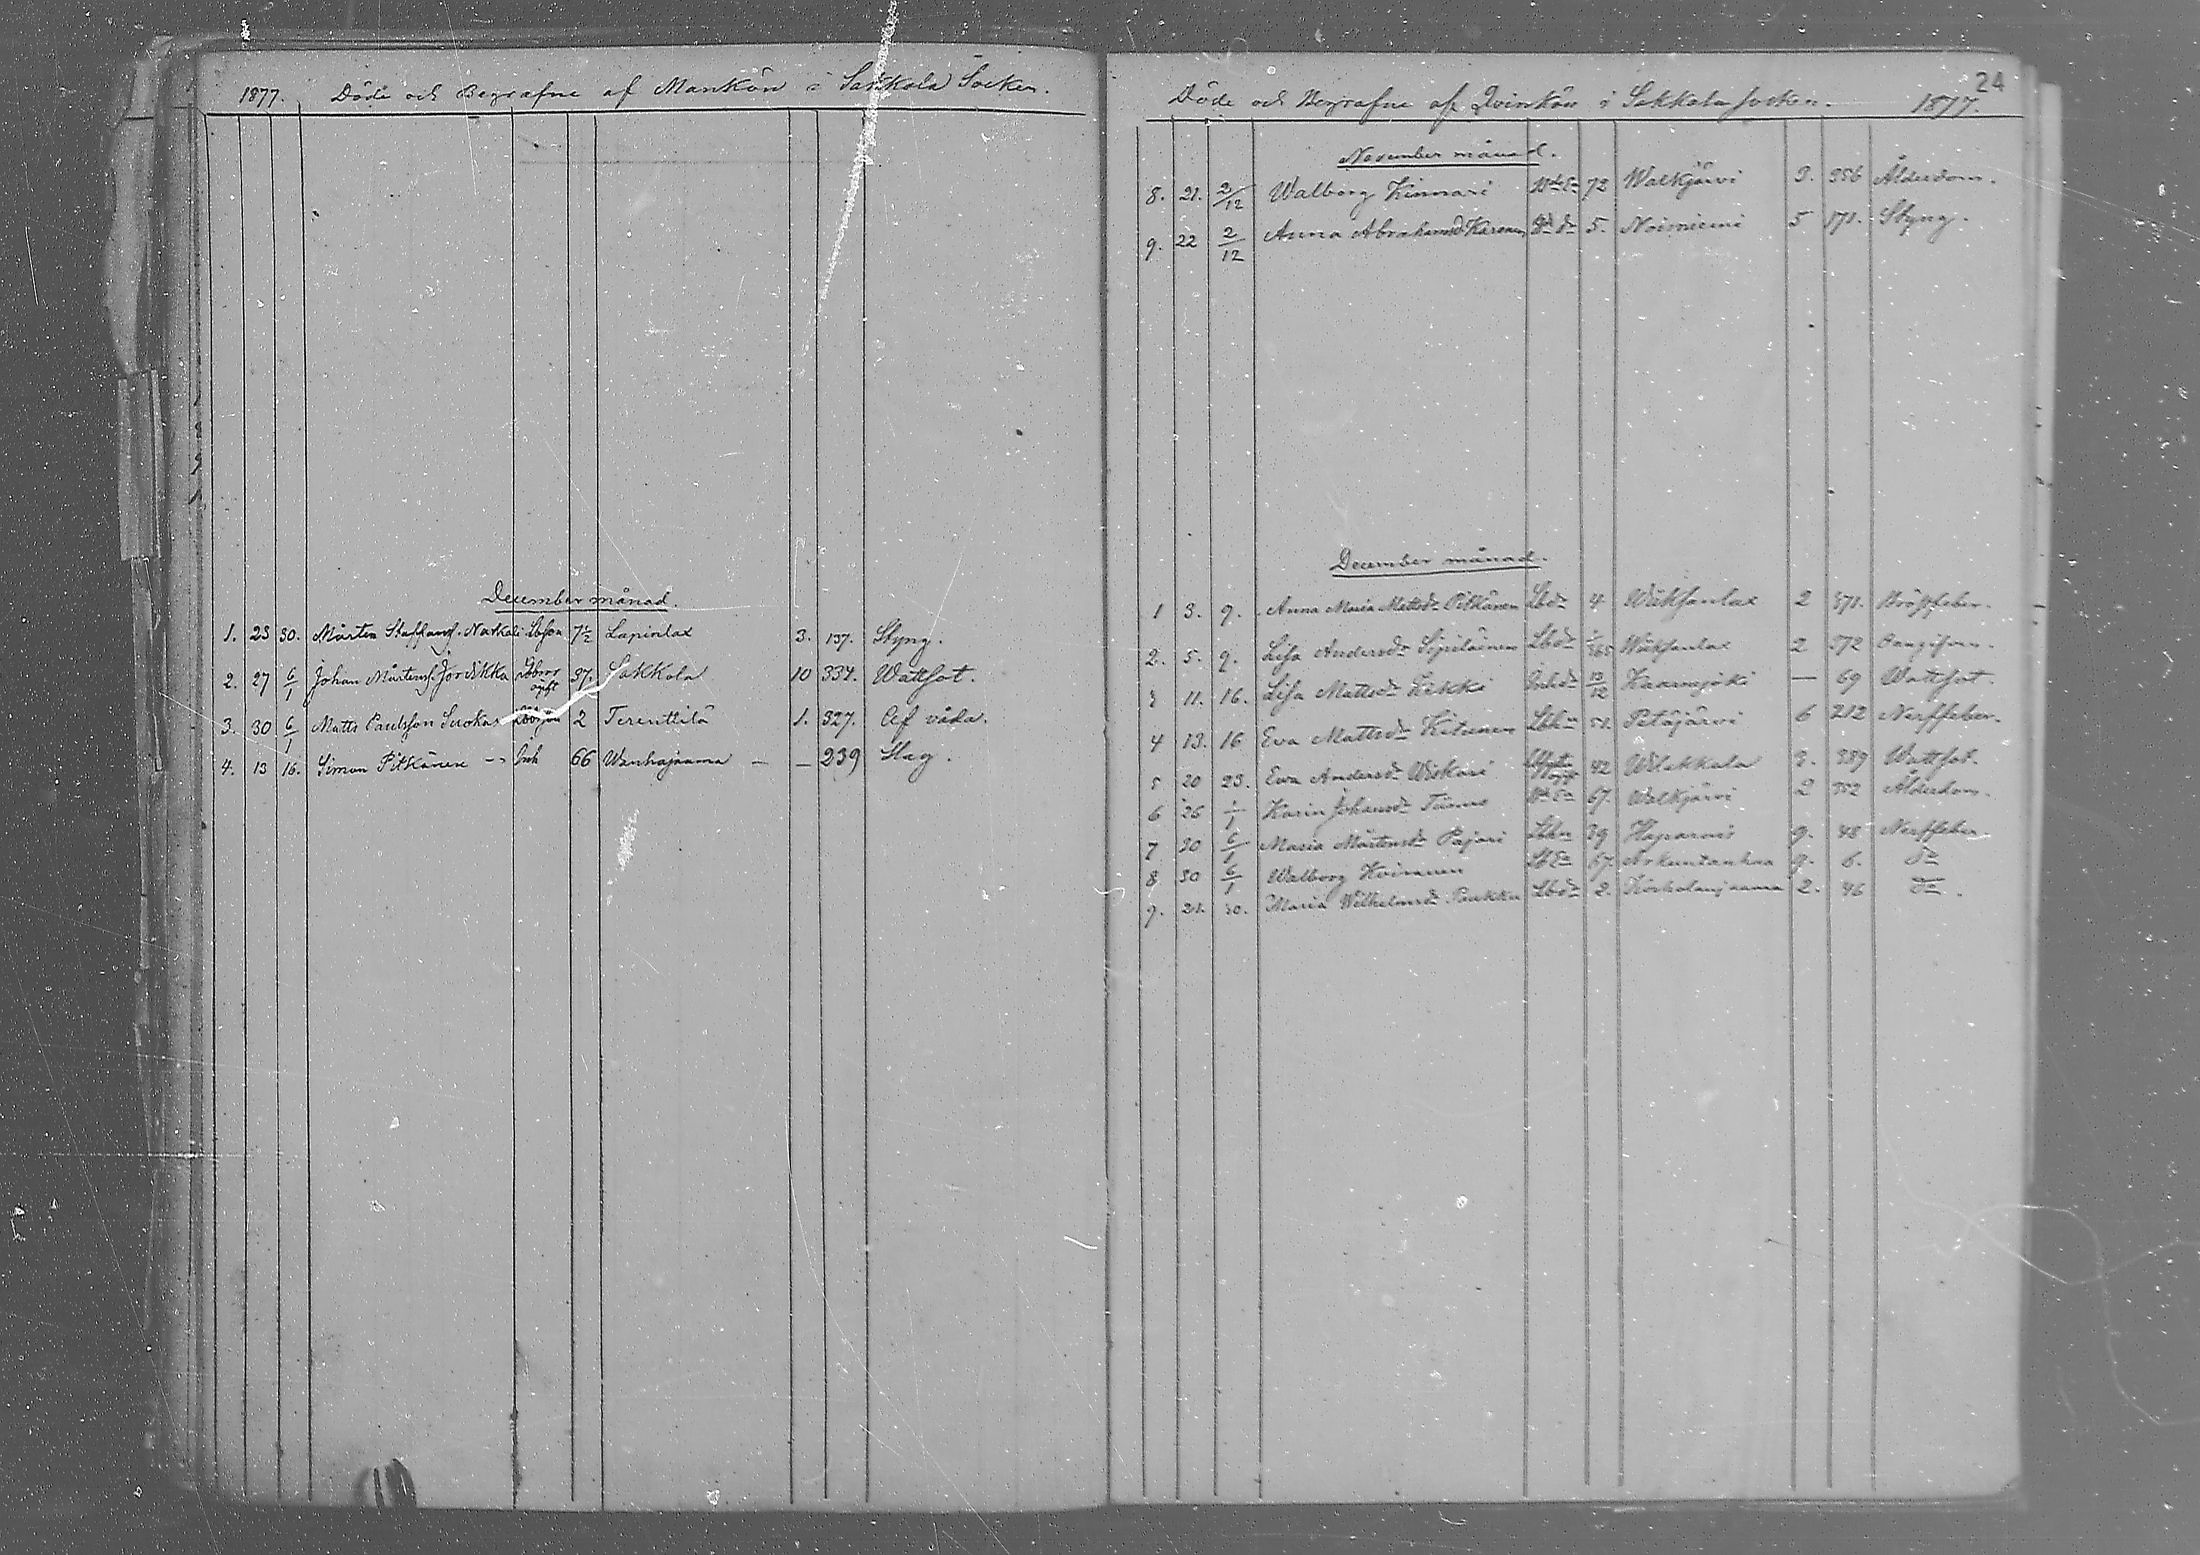 1877. Döde och Begrafne af Mankön i Sakkola Socken.
December månad.
1. 23 30. Mårten Staffansf. Natkali Lbson 7½ Lapinlax 3. 137. Styng.
2. 27 6/1 Johan Mårtensf. Jordikka ogift 37. Sakkola 10 334. Wattsot.
3. 30 6/1 Matts Paulsson Suokas 2 Terenttilä 1. 327. Af våda.
4. 13 16. Simon Pitkänen Inh 66 Wanhajaama — — 239 Slag.
24
Döde och Begrafne af Qvinkön i Sakkola socken. 1877.
November månad.
8. 21. 2/12 Walborg Kinnari 72 Walkjärvi 3. 356 Ålderdom.
9. 22 2/12 Anna Abrahamsdr 5. Noisniemi 5 171. Styng.
December månad.
1 3. 9. Anna Maria Mattsdr Pitkänen Lbdr 4 Wiiksanlax 2 371. Ströpfeber.
2. 5. 9. Lisa Andersdr Sipiläinen Lbdr Wiiksanlax 2 372 Oangifven.
3 11. 16. Lisa Mattsdr Kekki Inhdr 13/12 Haaransjöki — 69 Wattsot.
4 13. 16 Eva Mattsdr Kitunen 51. Petäjärvi 6 212 Nerffeber.
5 20 23. Eva Andersdr Wiskari 42 Wilakkala 3. 389 Wattsot.
6 26 1/1 Karin Johansdr 67. Walkjärvi 2 352 Ålderdom.
7 30 6/1 Maria Mårtensdr Pajari 39 Haparais 9. 48 Nerffeber.
8 30 6/1 Walborg Hviranen 67. Arkuntanhua 9. 6. do
9. 21. 30. Maria Wilhelmsdr Paukku Lbdr 2. 2. 46 do.